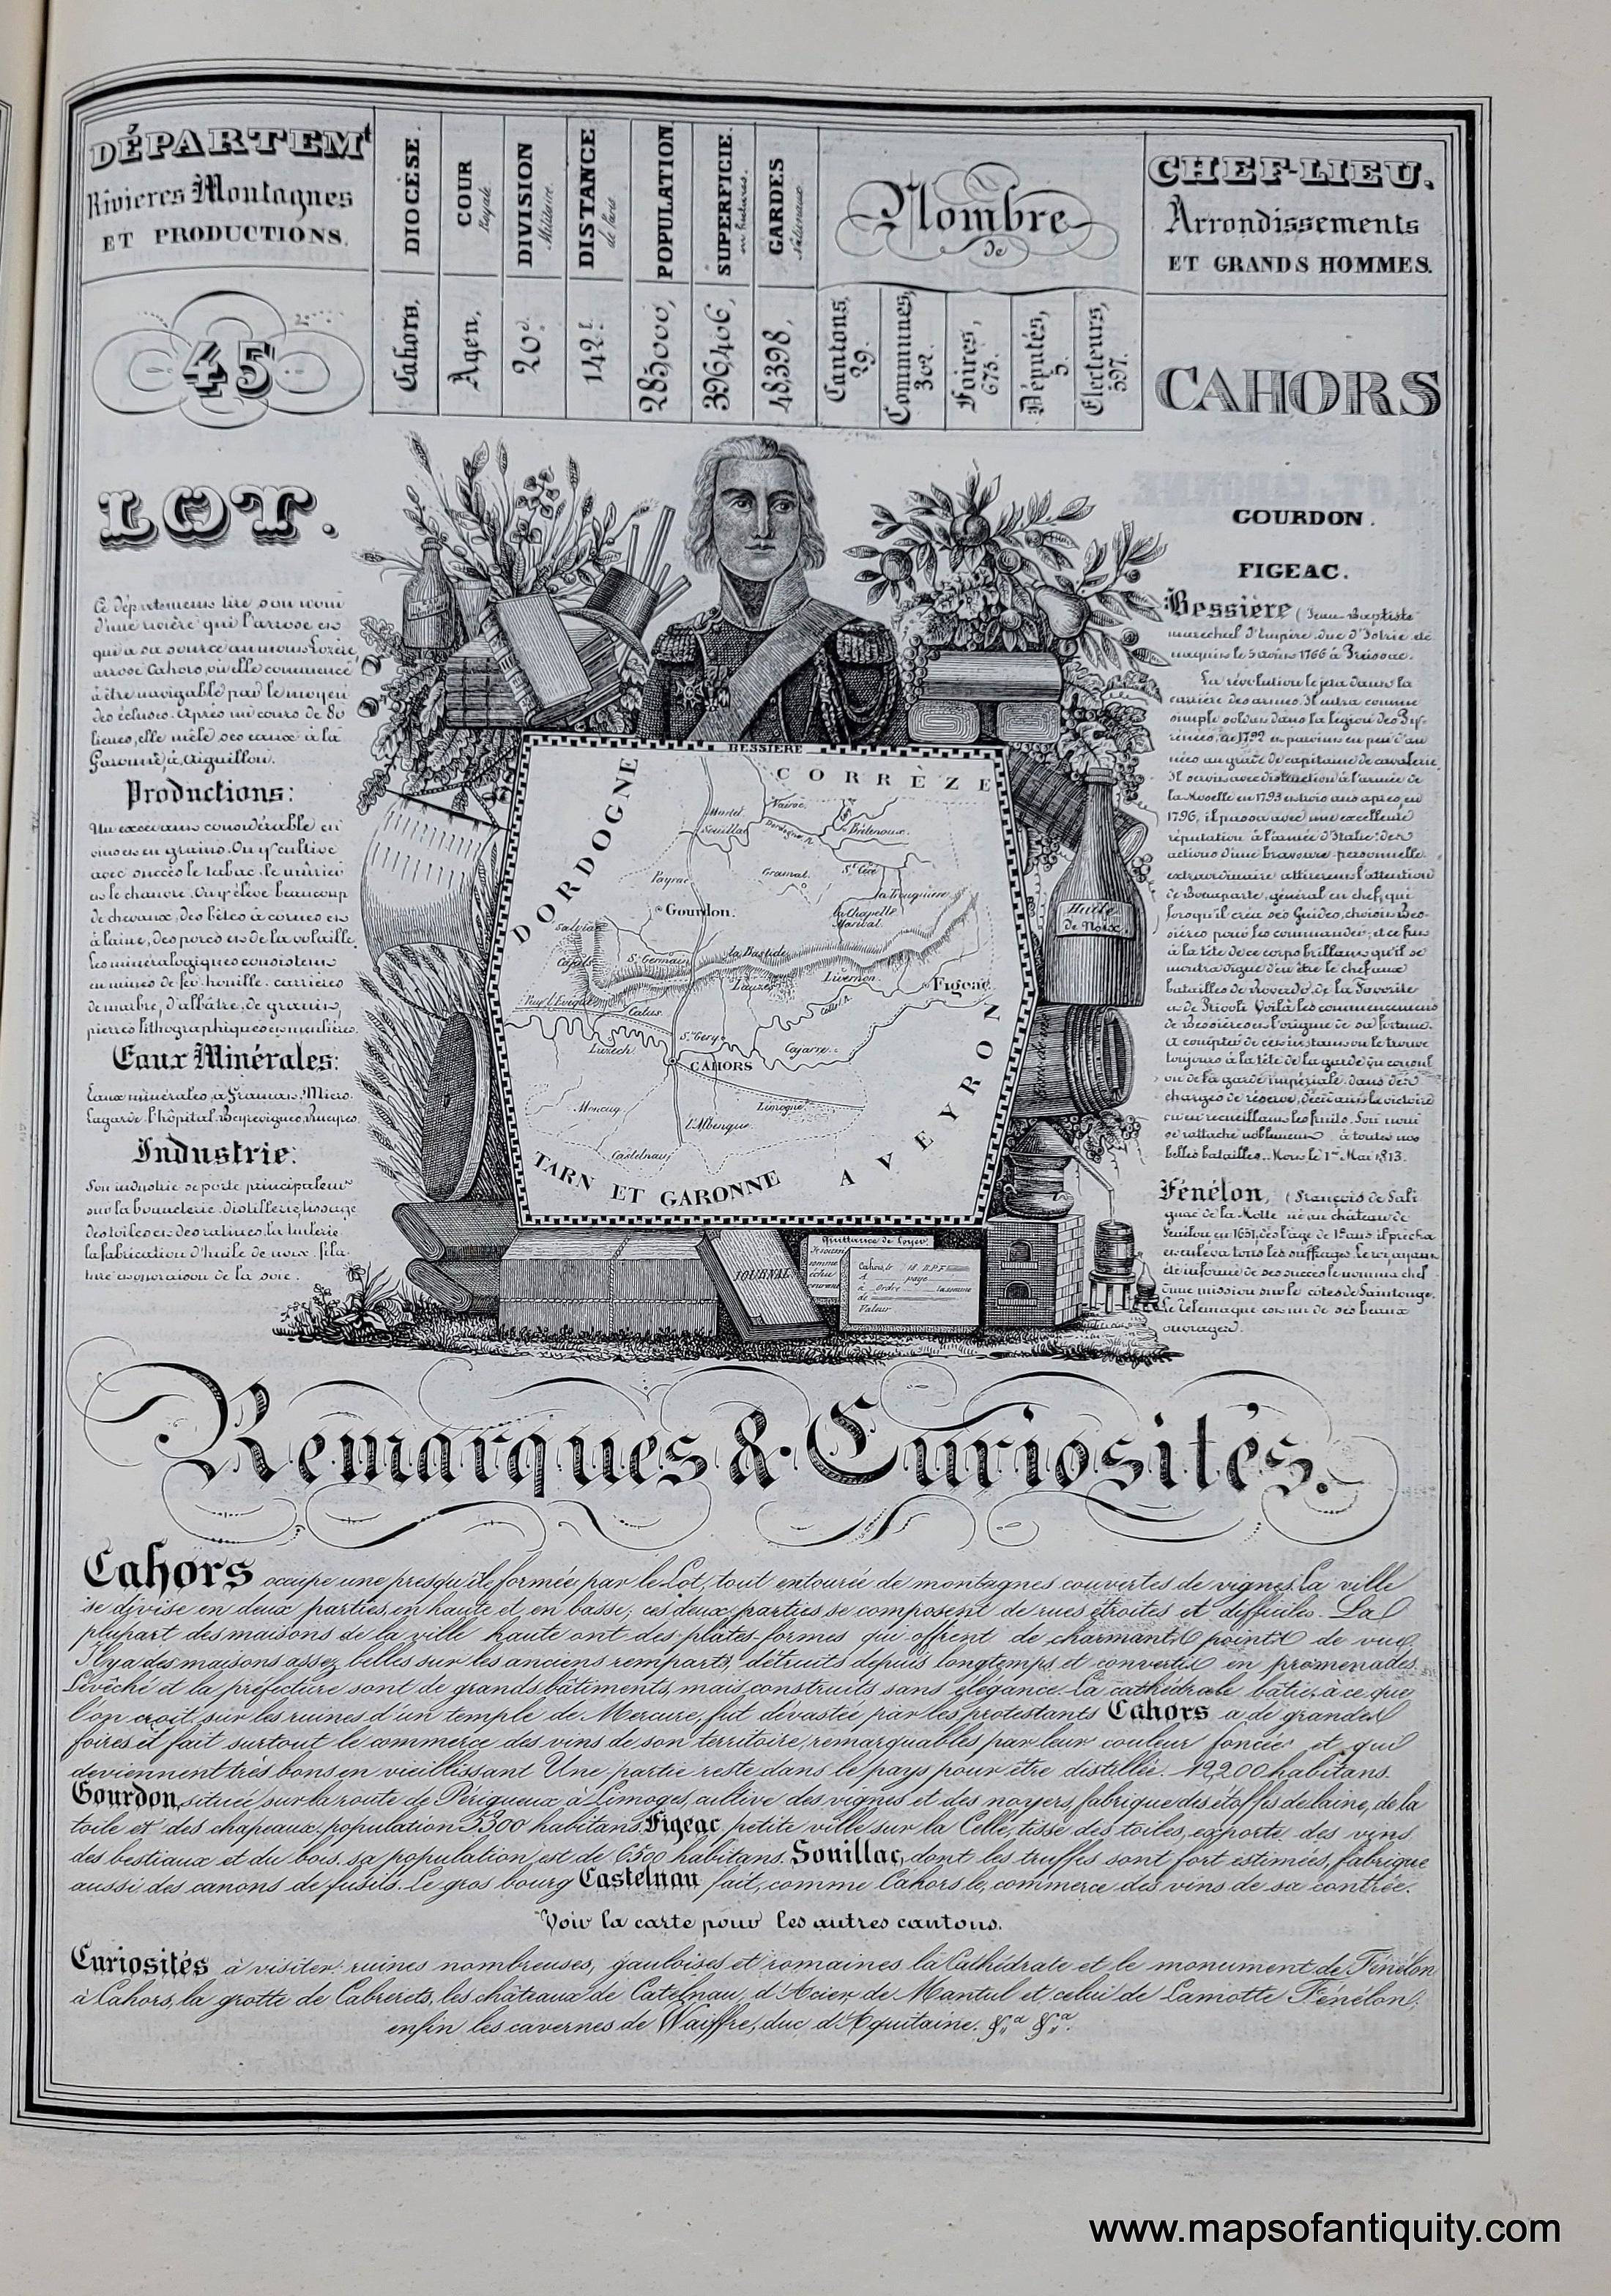 DÉPARTEMt
Rivieres Montagnes
ET PRODUCTIONS.
DIOCÈSE.
Cahors,
COUR
Royale
Agen,
DIVISION
Militaire
20e.
DISTANCE
de Paris
142 l.
POPULATION
285,000,
SUPERFICIE.
en hectares.
396,406,
GARDES
Nationaux
48,398,
Nombre
de
Cantons,
29.
Communes,
302.
Foires,
675.
Députés,
5.
Electeurs,
597.
CHEF-LIEU.
Arrondissements
ET GRANDS HOMMES.
45
CAHORS
LOT.
Ce département tire son nom
d'une rivière qui l'arrose et
qui a sa source au mont Lozère,
arrose Cahors, où elle commence
à être navigable par le moyen
des écluses. Après un cours de 80
lieues, elle mêle ses eaux à la
Garonne, à Aiguillon.
Productions:
Un excédant considérable en
vins et en grains. On y cultive
avec succès le tabac, le mûrier
et le chanvre. On y élève beaucoup
de chevaux, des bêtes à cornes et
à laine, des porcs et de la volaille.
Les minéralogiques consistent
en mines de fer, houille, carrières
de marbre, d'albâtre, de granit,
pierres lithographiques et meulières.
Eaux Minérales:
Eaux minérales, à Gramat, Miers
Lagarde, l'hôpital,
Industrie:
Son industrie se porte principalemt
sur la bonneterie, distillerie, tissage
des toiles et des ratines, la tuilerie
la fabrication d'huile de noix, fila-
ture et ouvraison de la soie.
GOURDON.
FIGEAC.
Bessière (Jean-Baptiste
maréchal d'Empire, duc d'Istrie et
naquit le 5 août 1766 à Preissac.
La révolution le jeta dans la
carrière des armes. Il entra comme
simple soldat dans la légion des Py-
rénées, de 1792 et parvint en peu d'an
nées au grade de capitaine de cavalerie.
Il servit avec distinction à l'armée de
la Moselle en 1793 et trois ans après, en
1796, il passa avec une excellente
réputation à l'armée d'Italie: des
actions d'une bravoure personnelle
extraordinaire attirèrent l'attention
de Bonaparte, général en chef, qui
lorsqu'il créa ses Guides, choisit Bes-
sières pour les commander, et ce fut
à la tête de ce corps brillant qu'il se
montra digne d'en être le chef aux
batailles de Roveredo, de la Favorite
et de Rivoli. Voilà les commencements
de Bessières et l'origine de sa fortune.
A compter de cet instant on le trouve
toujours à la tête de la garde du consul
ou de la garde impériale, dans des
charges de réserve, décidant la victoire
ou en recueillant les fruits. Son nom
se rattache noblement à toutes nos
belles batailles. Mort le 1er Mai 1813.
Fénélon, (François de Sali
gnac de la Motte né au château de
Fénélon en 1651, dès l'age de 19 ans il prêcha
et enleva tous les suffrages. Le roi, ayant
été informé de ses succès le nomma chef
d'une mission sur le côtes de Saintonge.
Le Télémaque est un de ses beaux
ouvrages.
BESSIÈRE
CORRÈZE
DORDOGNE
AVEYRON
TARN ET GARONNE
Martel
Vairac
Souillac
Dordogne R.
Brétenoux
St Céré
Gramat
Payrac
la Tronquière
la Chapelle
Marival
Gourdon.
Salviac
Cazals
St Germain
la Bastide
Lauzès
Livernon
Figeac
Puy l'Evêque
Catus
Célé R.
St Gery
Luzech
Cajarc
CAHORS
Moncuq
Limogne
l'Albenque
Castelnau
Huile
de Noix
JOURNAL
Quittance de Loyer.
Je soussi
somme
échu
courant
Cahors, le 18 B.P.F.
A payé
à Ordre la somme
de
Valeur
Remarques & Curiosités.
Cahors occupe une presqu'île formée par le Lot, tout entourée de montagnes couvertes de vignes. La ville
se divise en deux parties, en haute et en basse; ces deux parties se composent de rues étroites et difficiles. La
plupart des maisons de la ville haute ont des plates-formes qui offrent de charmants points de vue.
Il y a des maisons assez belles sur les anciens remparts, détruits depuis longtemps et convertis en promenades.
L'évêché et la préfecture sont de grands bâtiments, mais construits sans élégance. La cathédrale bâtie, à ce que
l'on croit, sur les ruines d'un temple de Mercure, fut dévastée par les protestants Cahors a de grandes
foires et fait surtout le commerce des vins de son territoire, remarquables par leur couleur foncée et qui
deviennent très bons en vieillissant Une partie reste dans le pays pour être distillée. 12,200 habitans.
Gourdon, située sur la route de Périgueux à Limoges, cultive des vignes et des noyers, fabrique des étoffes de laine, de la
toile et des chapeaux. population 5300 habitans. Figeac, petite ville sur la Celle, tisse des toiles, exporte des vins
des bestiaux et du bois. sa population est de 6500 habitans. Souillac, dont les truffes sont fort estimées, fabrique
aussi des canons de fusils. Le gros bourg Castelnau fait, comme Cahors le, commerce des vins de sa contrée.
Voir la carte pour les autres cantons.
Curiosités à visiter: ruines nombreuses, gauloises et romaines la Cathédrale et le monument de Fénélon
à Cahors, la grotte de Cabrerets, les châteaux de Catelnau, d'Acier de Mantul et celui de Lamotte Fénélon;
enfin les cavernes de Waiffre, duc d'Aquitaine. &a &a.
www.mapsofantiquity.com